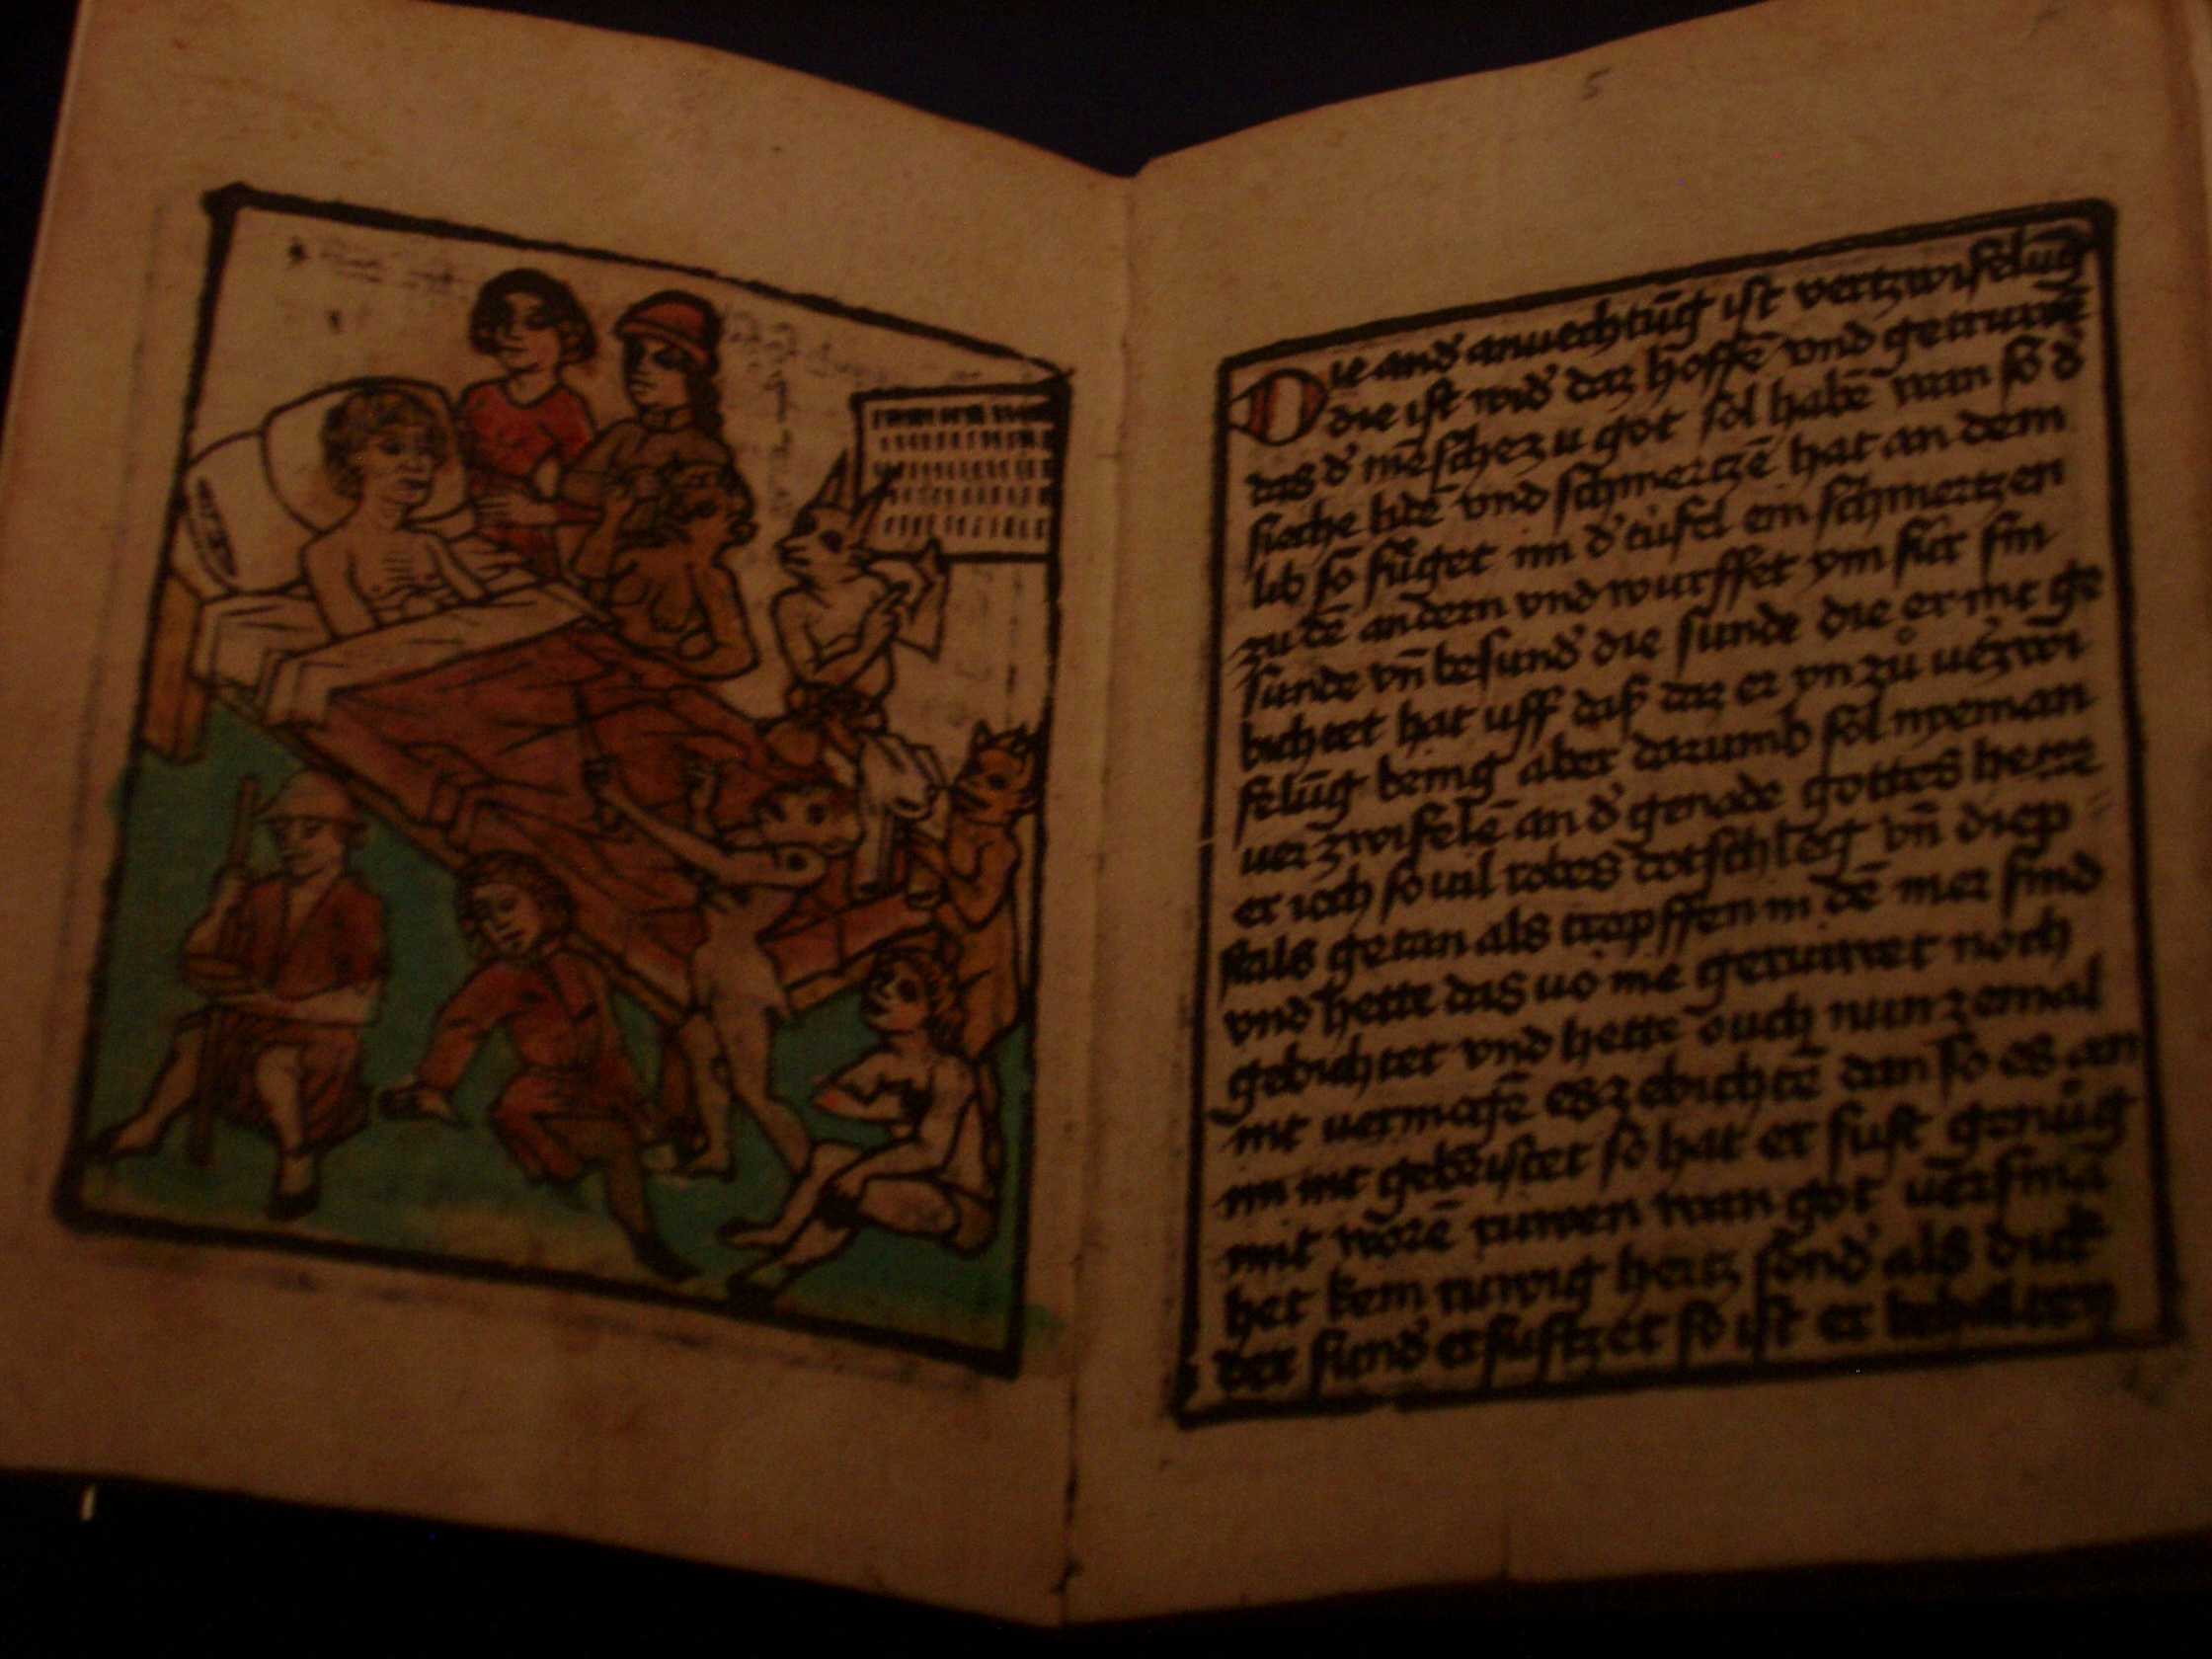 5
Die and' anuechtūg ist vertzwifelūg
die ist wid' daz hoffē vnd getruwē
das d' mēsche zu got sol habē wan so d'
sieche lidē vnd schmertzē hat an dem
lib so fůget im d' tüfel ein schmertzen
zu dē andern vnd wurffet ym für sin
sunde vñ besund' die sunde die er nit ge
bichtet hat uff daß daz er yn zů uerzwi
felūg bring aber darumb sol nyeman
uerzwifelē an d' genade gottes hette
er ioch so uil todes dotschleg vñ diep
stals getan als tropffen in dē mer sind
vnd hette das uō me geruwet noch
gebichtet vnd hette ouch nun zemal
nit uermogē es ze bichtē dan so es an
im nit gebristet so hat er sust genůg
mit worē ruwen wan got uersma
het kein ruwig hertz sond' als dick
der sund' ersufftzet so ist er behalten